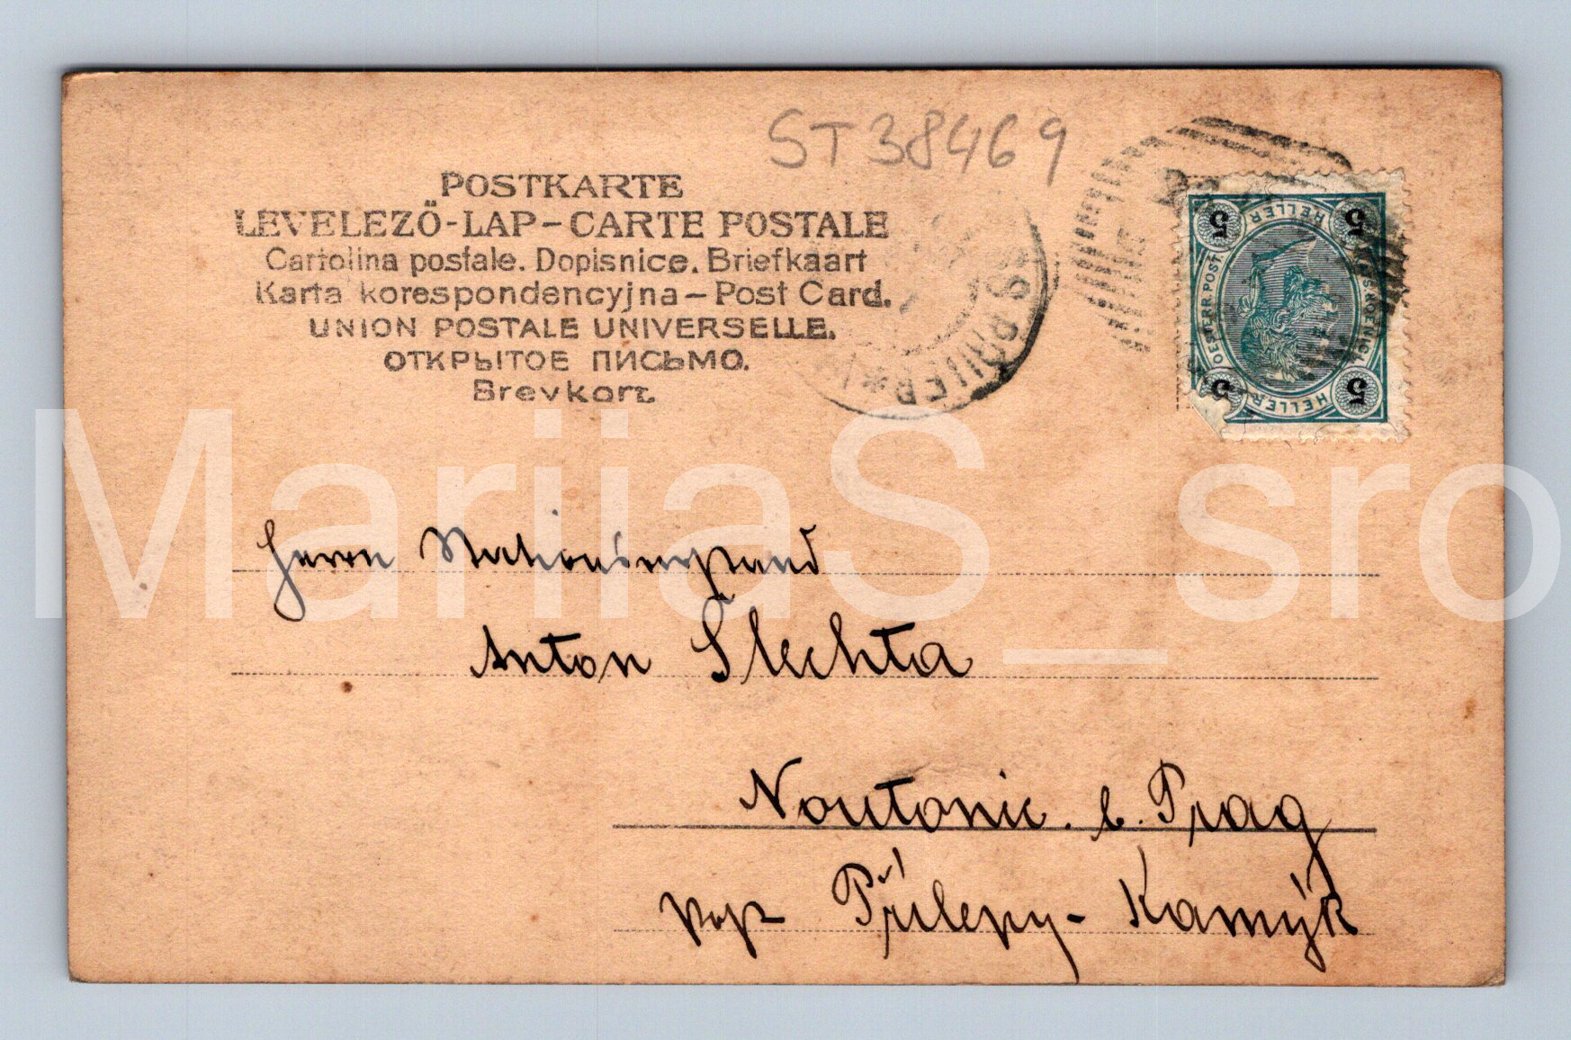 ST38469
POSTKARTE
LEVELEZŐ-LAP-CARTE POSTALE
Cartolina postale. Dopisnice. Briefkaart
Karta korespondencyjna – Post Card.
UNION POSTALE UNIVERSELLE.
ОТКРЫТОЕ ПИСЬМО.
Brevkort.
5 HELLER 5
5 HELLER 5
MariiaS_sro
Herrn Stationsvorstand
Anton Šlechta
Noutonic. b. Prag
Přílepy - Kamýk